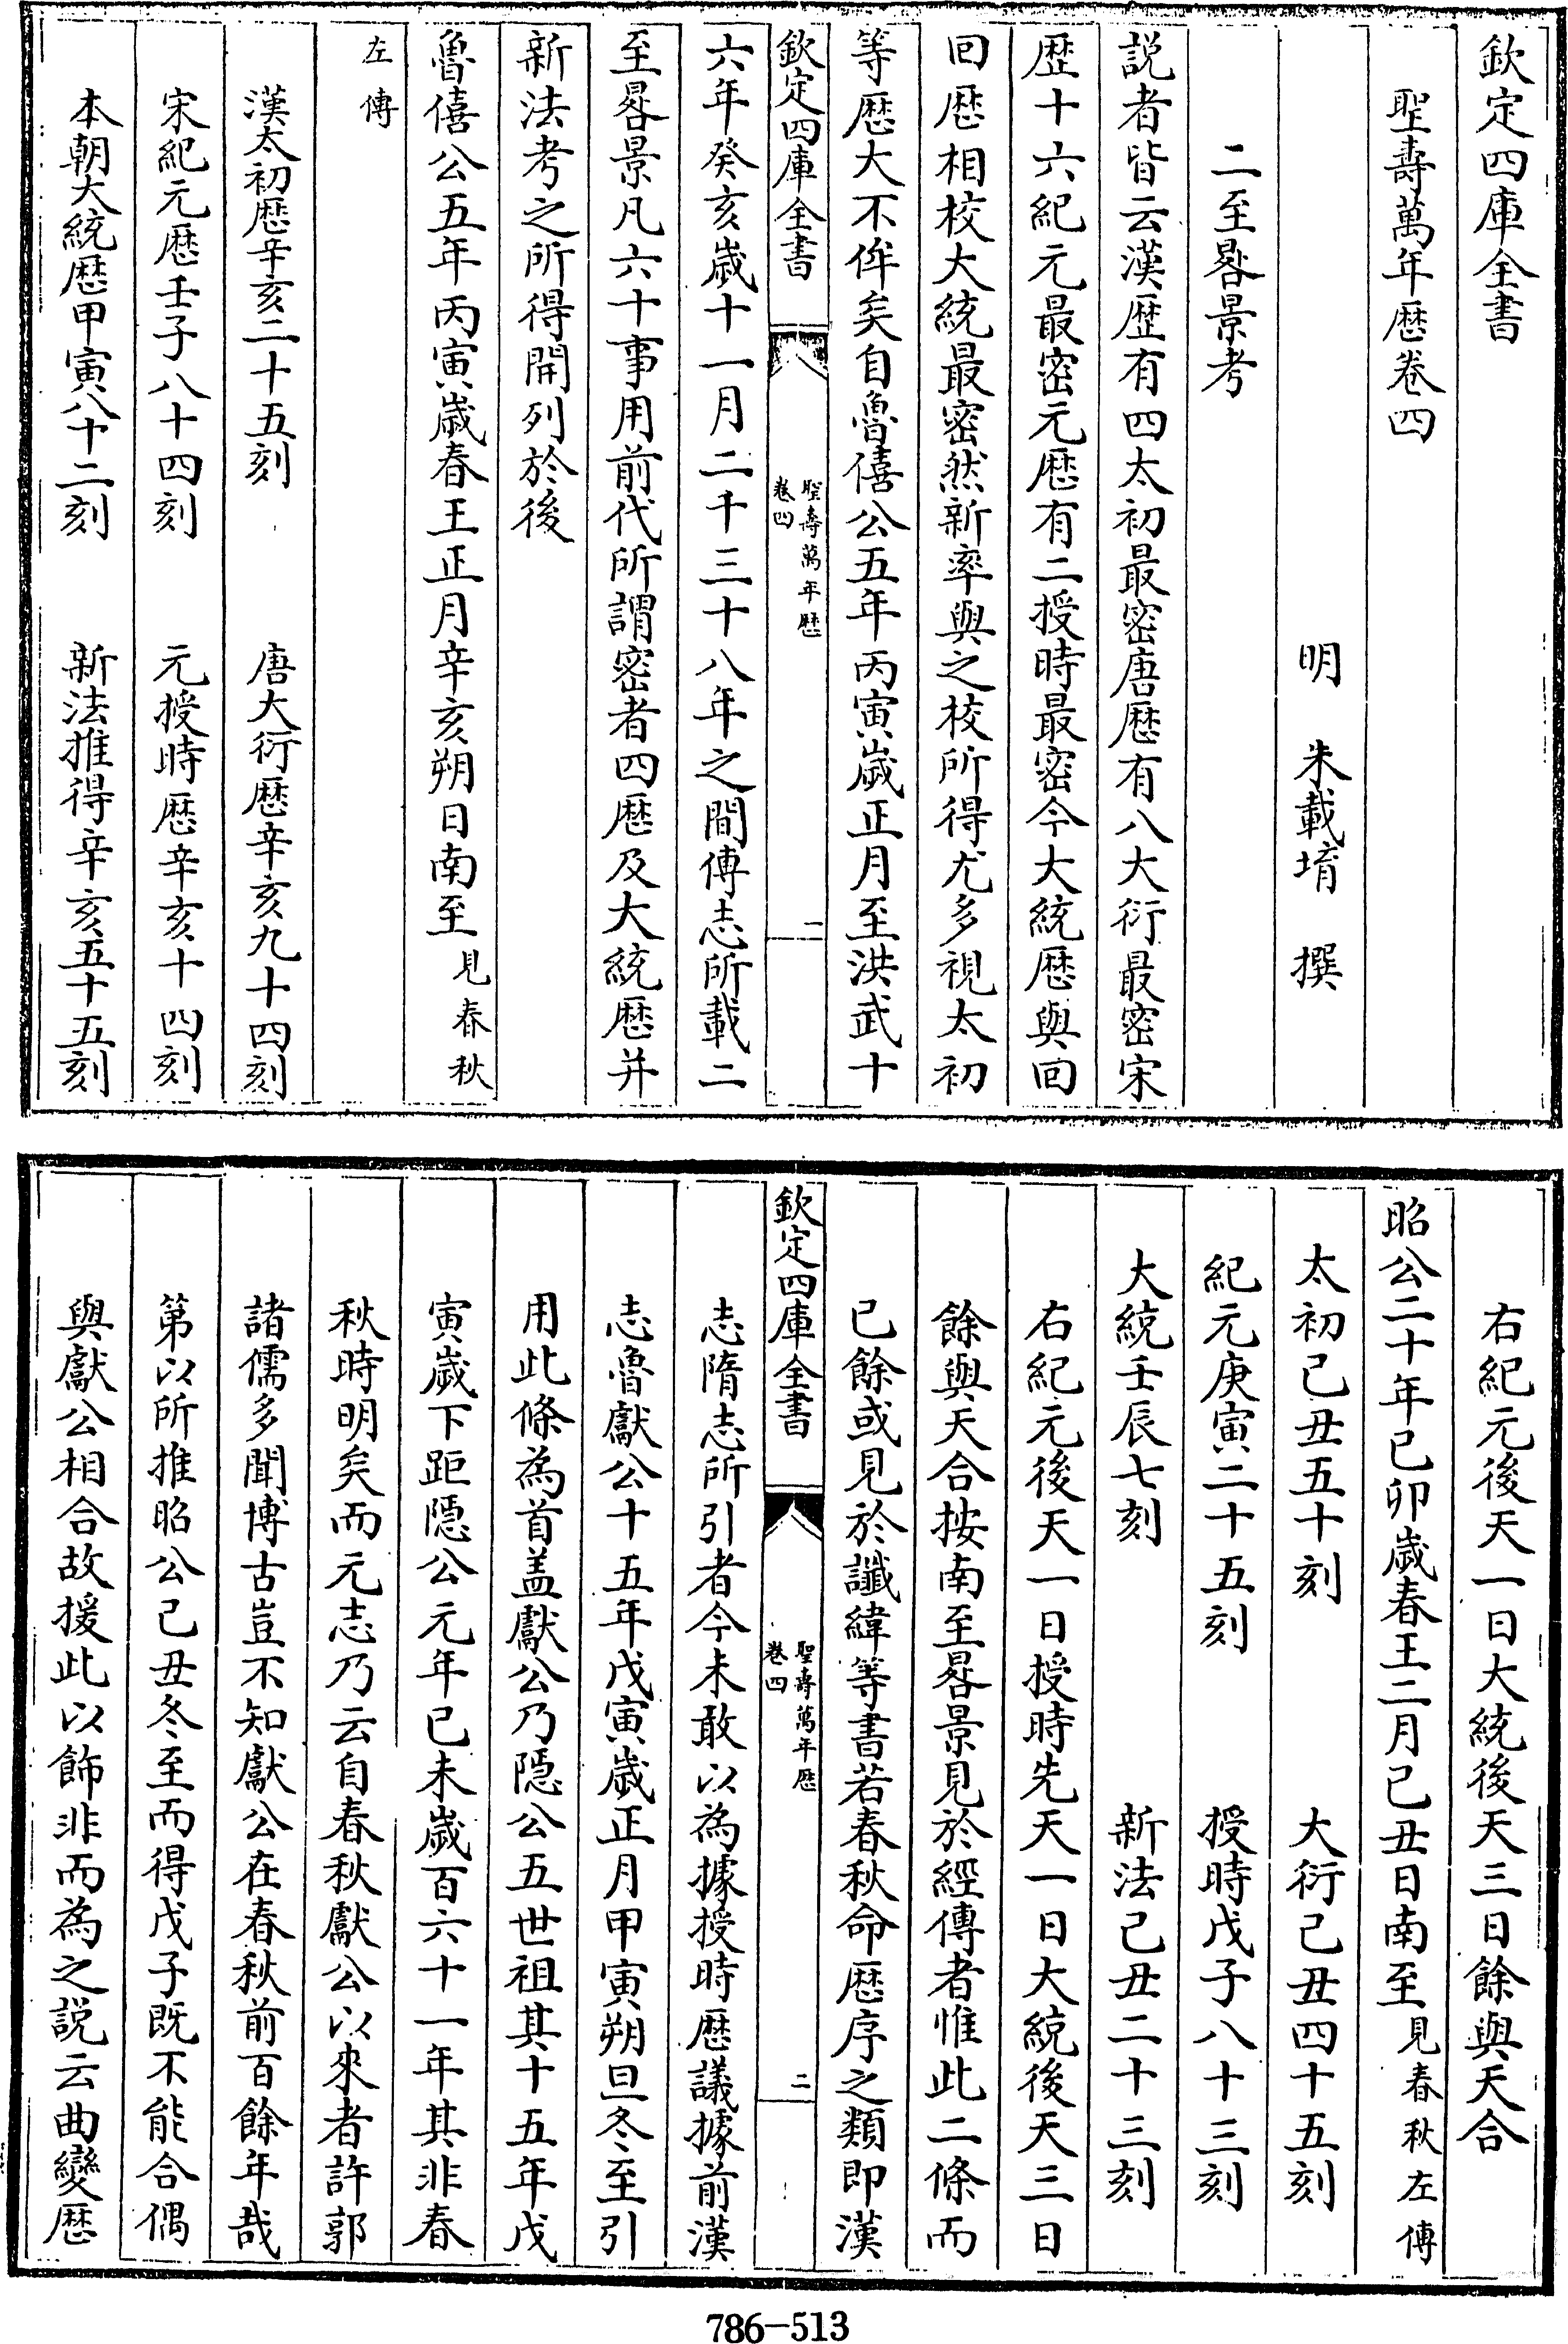 欽定四庫全書
聖壽萬年厯卷四
明 朱載堉 撰
二至晷景考
説者皆云漢歴有四太初最密唐厯有八大衍最密宋
歴十六紀元最密元厯有二授時最密今大統厯與回
回厯相校大統最密然新率與之校所得尤多視太初
等厯大不侔矣自魯僖公五年丙寅歲正月至洪武十
欽定四庫全書
聖壽萬年厯
卷四
一
六年癸亥歲十一月二千三十八年之間傳志所載二
至晷景凡六十事用前代所謂密者四厯及大統厯并
新法考之所得開列於後
魯僖公五年丙寅歲春王正月辛亥朔日南至見春秋
左傳
漢太初厯辛亥二十五刻 唐大衍厯辛亥九十四刻
宋紀元厯壬子八十四刻 元授時厯辛亥十四刻
本朝大統厯甲寅八十二刻 新法推得辛亥五十五刻
右紀元後天一日大統後天三日餘與天合
昭公二十年己卯歲春王二月己丑日南至見春秋左傳
太初己丑五十刻 大衍己丑四十五刻
紀元庚寅二十五刻 授時戊子八十三刻
大統壬辰七刻 新法己丑二十三刻
右紀元後天一日授時先天一日大統後天三日
餘與天合按南至晷景見於經傳者惟此二條而
已餘或見於讖緯等書若春秋命厯序之類即漢
欽定四庫全書
聖壽萬年厯
卷四
二
志隋志所引者今未敢以為據授時厯議據前漢
志魯獻公十五年戊寅歲正月甲寅朔旦冬至引
用此條為首盖獻公乃隱公五世祖其十五年戊
寅歲下距隱公元年己未歲百六十一年其非春
秋時明矣而元志乃云自春秋獻公以來者許郭
諸儒多聞博古豈不知獻公在春秋前百餘年哉
第以所推昭公己丑冬至而得戊子既不能合偶
與獻公相合故援此以飾非而為之説云曲變厯
786-513